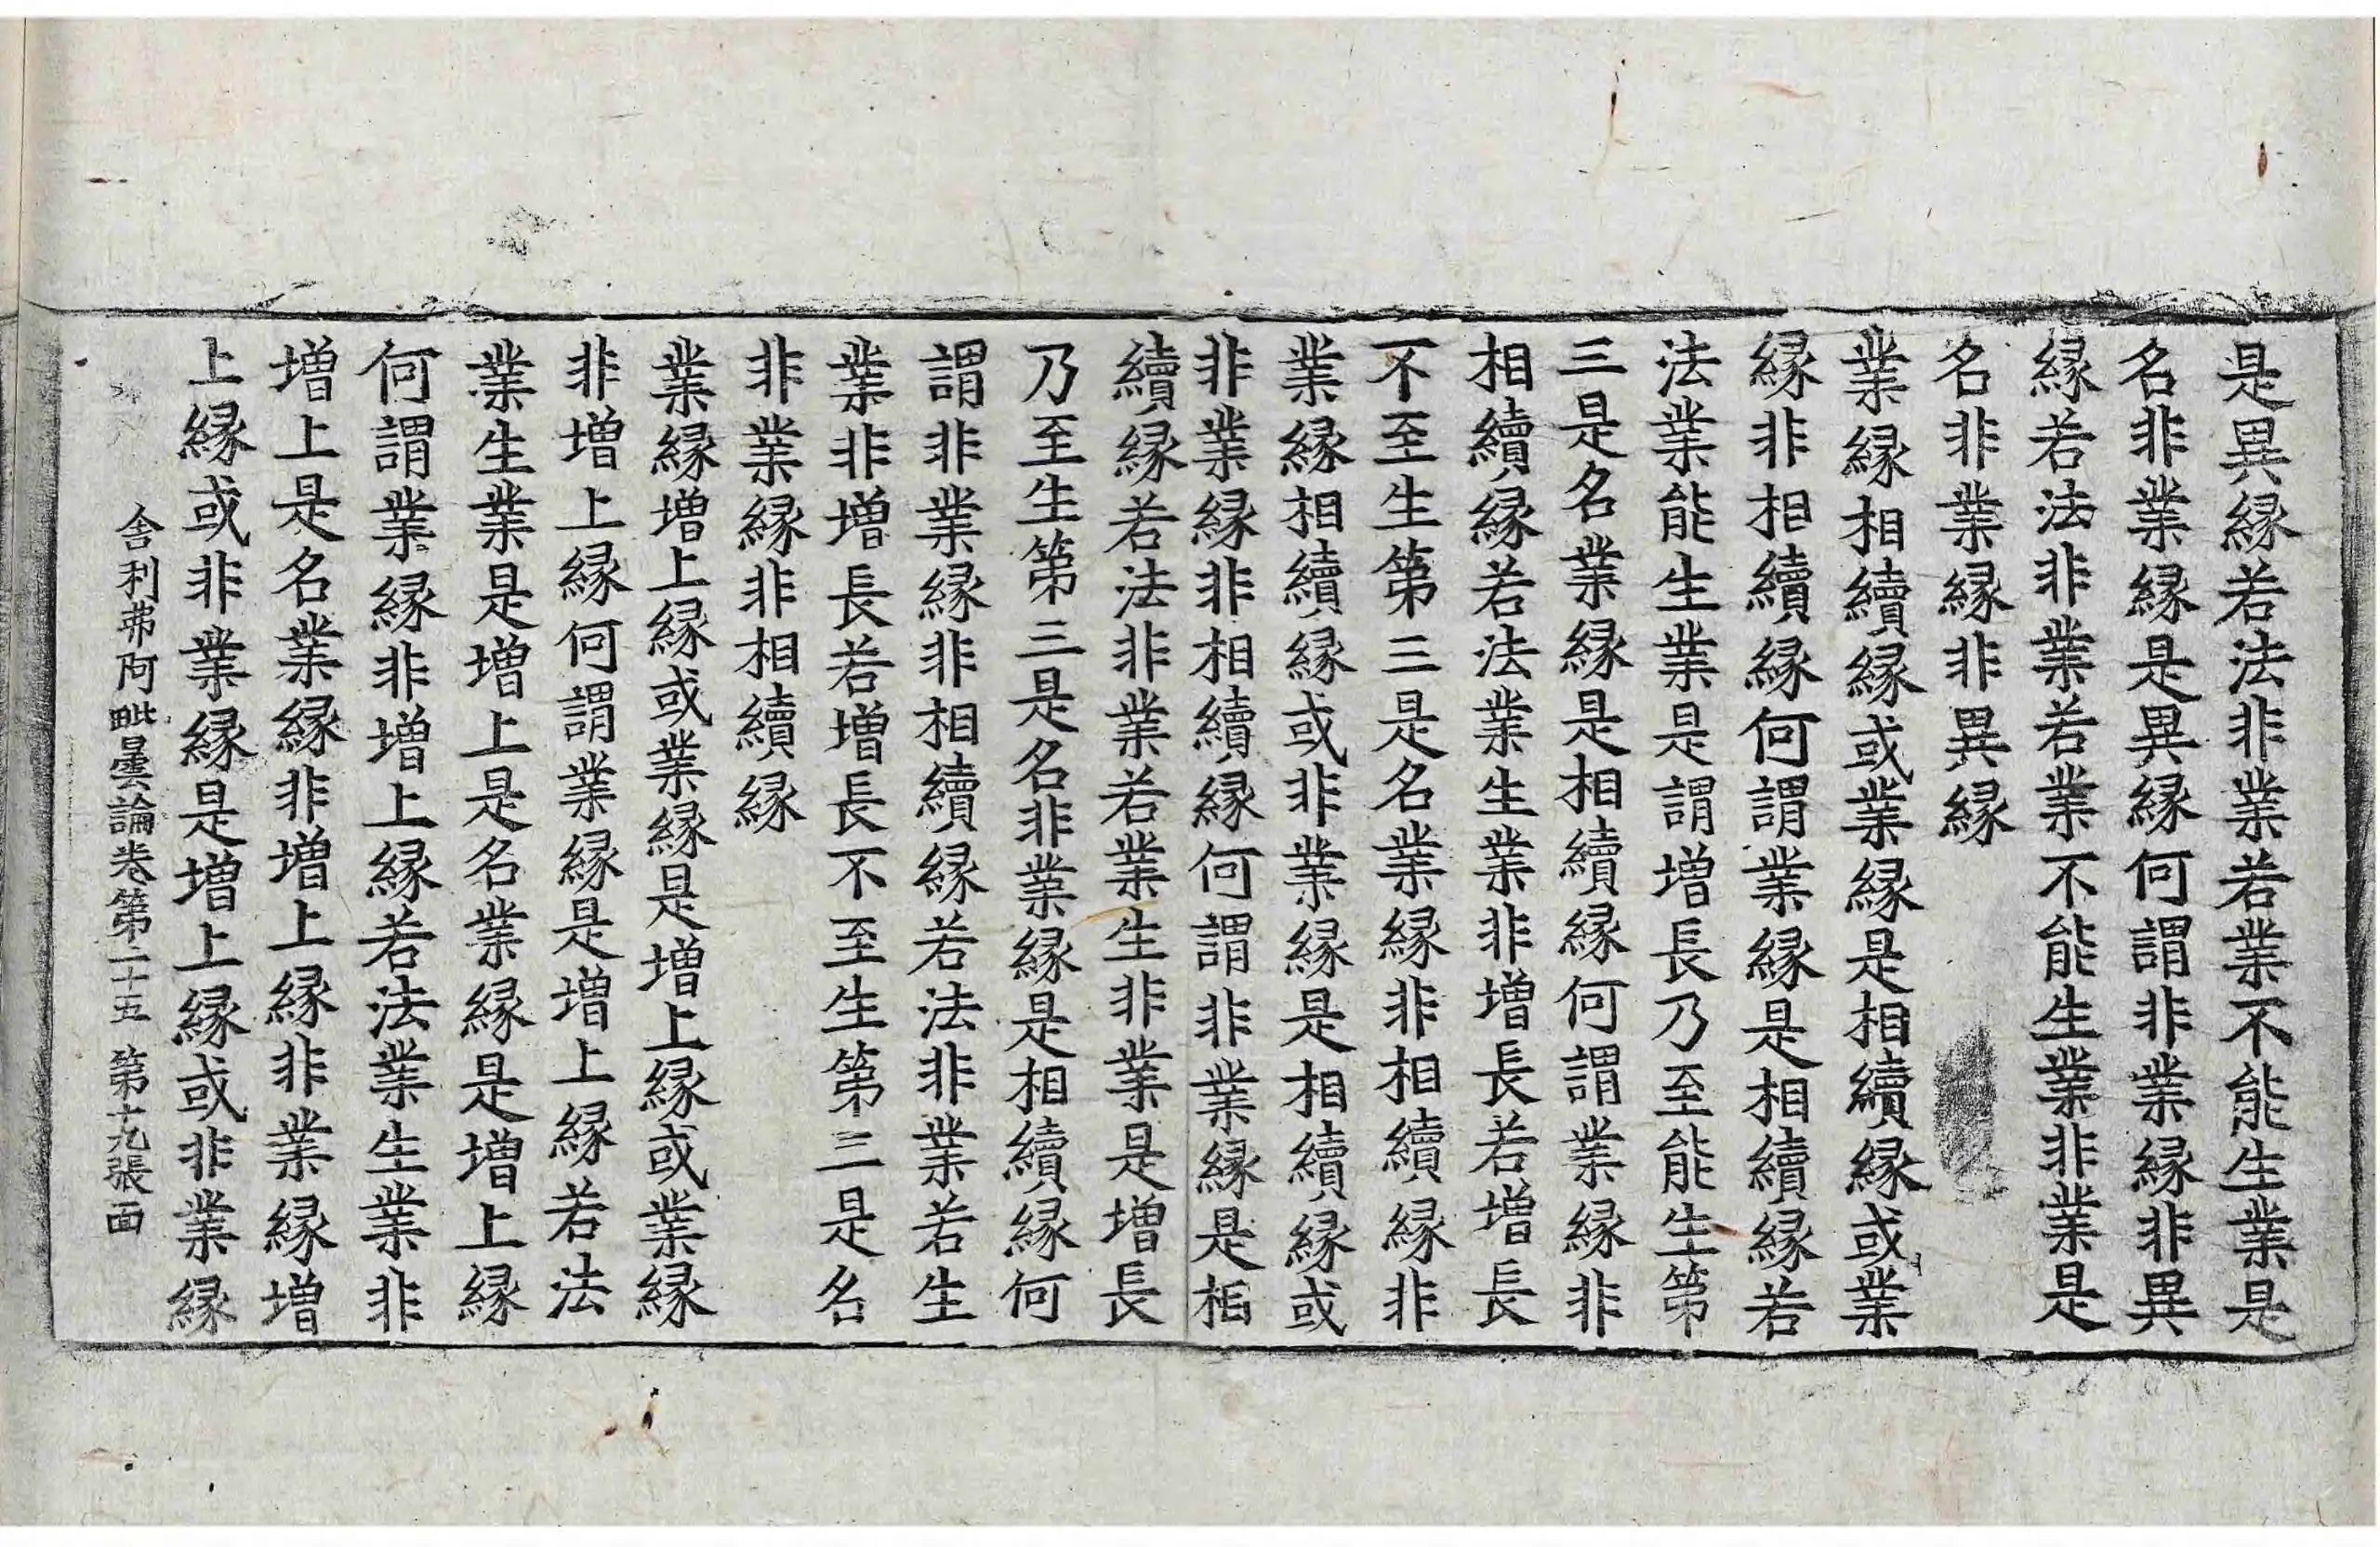 是異縁若法非業若業不能生業是
名非業縁是異縁何謂非業縁非異
縁若法非業若業不能生業非業是
名非業縁非異縁
業縁相續縁或業縁是相續縁或業
縁非相續縁何謂業縁是相續縁若
法業能生業是謂增長乃至能生第
三是名業縁是相續縁何謂業縁非
相續縁若法業生業非增長若增長
不至生第三是名業縁非相續縁非
業縁相續縁或非業縁是相續縁或
非業縁非相續縁何謂非業縁是相
續縁若法非業若業生非業是增長
乃至生第三是名非業縁是相續縁何
謂非業縁非相續縁若法非業若生
業非增長若增長不至生第三是名
非業縁非相續縁
業縁增上縁或業縁是增上縁或業縁
非增上縁何謂業縁是增上縁若法
業生業是增上是名業縁是增上縁
何謂業縁非增上縁若法業生業非
增上是名業縁非增上縁非業縁增
上縁或非業縁是增上縁或非業縁
舎利弗阿毗曇論卷第二十五 第十九張 面